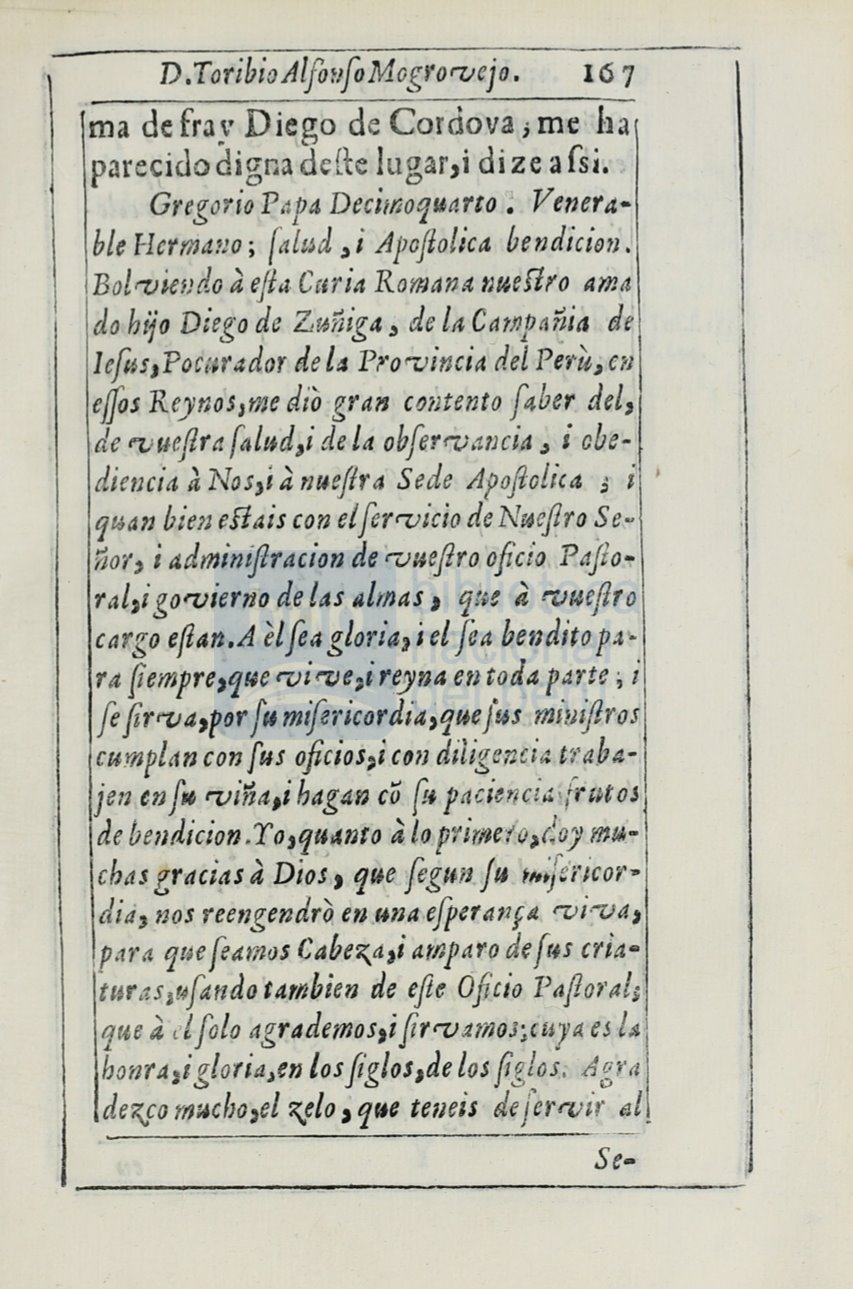 D.Toribio Alfonſo Mogrovejo. 167
ma de fray Diego de Cordova; me ha
parecido digna deſte lugar, i dize aſsi.
Gregorio Papa Decimoquarto. Venera-
ble Hermano; ſalud, i Apoſtolica bendicion.
Bolviendo à eſta Curia Romana nueſtro ama
do hijo Diego de Zuñiga, de la Campañia de
Ieſus, Pocurador de la Provincia del Perù, en
eſſos Reynos, me diò gran contento ſaber del,
de vueſtra ſalud, i de la obſervancia, i obe-
diencia à Nos, i à nueſtra Sede Apoſtolica; i
quan bien eſtais con el ſervicio de Nueſtro Se-
ñor, i adminiſtracion de vueſtro oficio Paſto-
ral, i govierno de las almas, que à vueſtro
cargo eſtan. A èl ſea gloria, i el ſea bendito pa-
ra ſiempre, que vive, i reyna en toda parte, i
ſe ſirva, por ſu miſericordia, que ſus miniſtros
cumplan con ſus oficios, i con diligencia traba-
jen en ſu viña, i hagan cõ ſu paciencia frutos
de bendicion. Yo, quanto à lo primero, doy mu-
chas gracias à Dios, que ſegun ſu miſericor-
dia, nos reengendrò en una eſperança viva,
para que ſeamos Cabeza, i amparo de ſus cria-
turas, uſando tambien de eſte Oficio Paſtoral;
que à el ſolo agrademos, i ſirvamos; cuya es la
honra, i gloria, en los ſiglos, de los ſiglos. Agra
dezco mucho, el zelo, que teneis de ſervir al
Se-